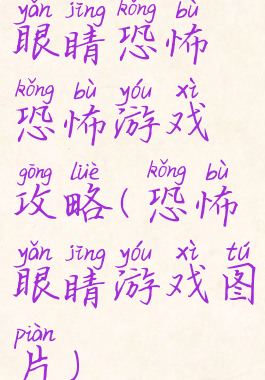 yǎn jīng kǒng bù
眼睛恐怖
kǒng bù yóu xì
恐怖游戏
gōng lüè kǒng bù
攻略(恐怖
yǎn jīng yóu xì tú
眼睛游戏图
piàn
片)